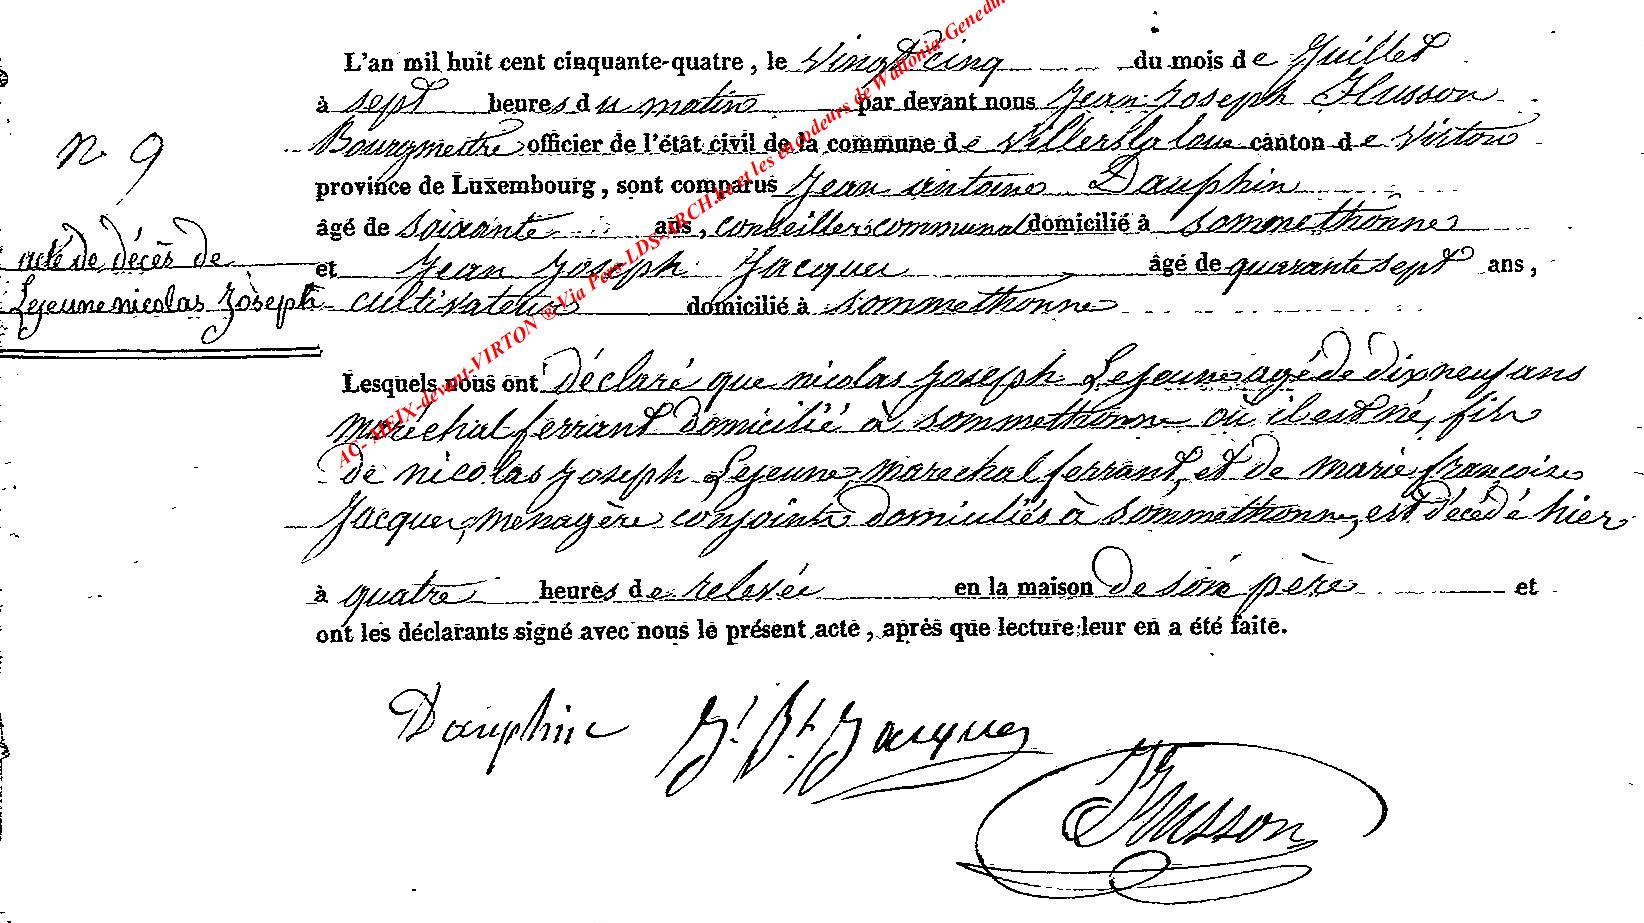 L'an mil huit cent cinquante-quatre, le vingt cinq du mois de Juillet
à sept heures du matin par devant nous Jean Joseph Husson
N° 9
Bourgmestre officier de l'état civil de la commune de Villersla loue canton de Virton
province de Luxembourg, sont comparus Jean antoine Dauphin
âgé de soixante ans, conseiller communal domicilié à sommethonne
acte de décès de
Lejeune nicolas Joseph
et Jean Joseph Jacques âgé de quarante sept ans,
cultivateur domicilié à sommethonne
Lesquels nous ont déclaré que nicolas Joseph Lejeune agé de dixneuf ans
Maréchal ferrant domicilié à sommethonne où il est né, fils
de nicolas Joseph Lejeune, marechal ferrant, et de marie françoise
Jacques, menagère conjoints domiciliés à sommethonne, est décédé hier
à quatre heures de relevée en la maison de son père et
ont les déclarants signé avec nous le présent acte, après que lecture leur en a été faite.
Dauphin J. Jh. Jacques
JHusson
AC- MEIX-devant-VIRTON ® Via Pers-LDS-ARCH.be et les encodeurs de Wallonia-Genedin